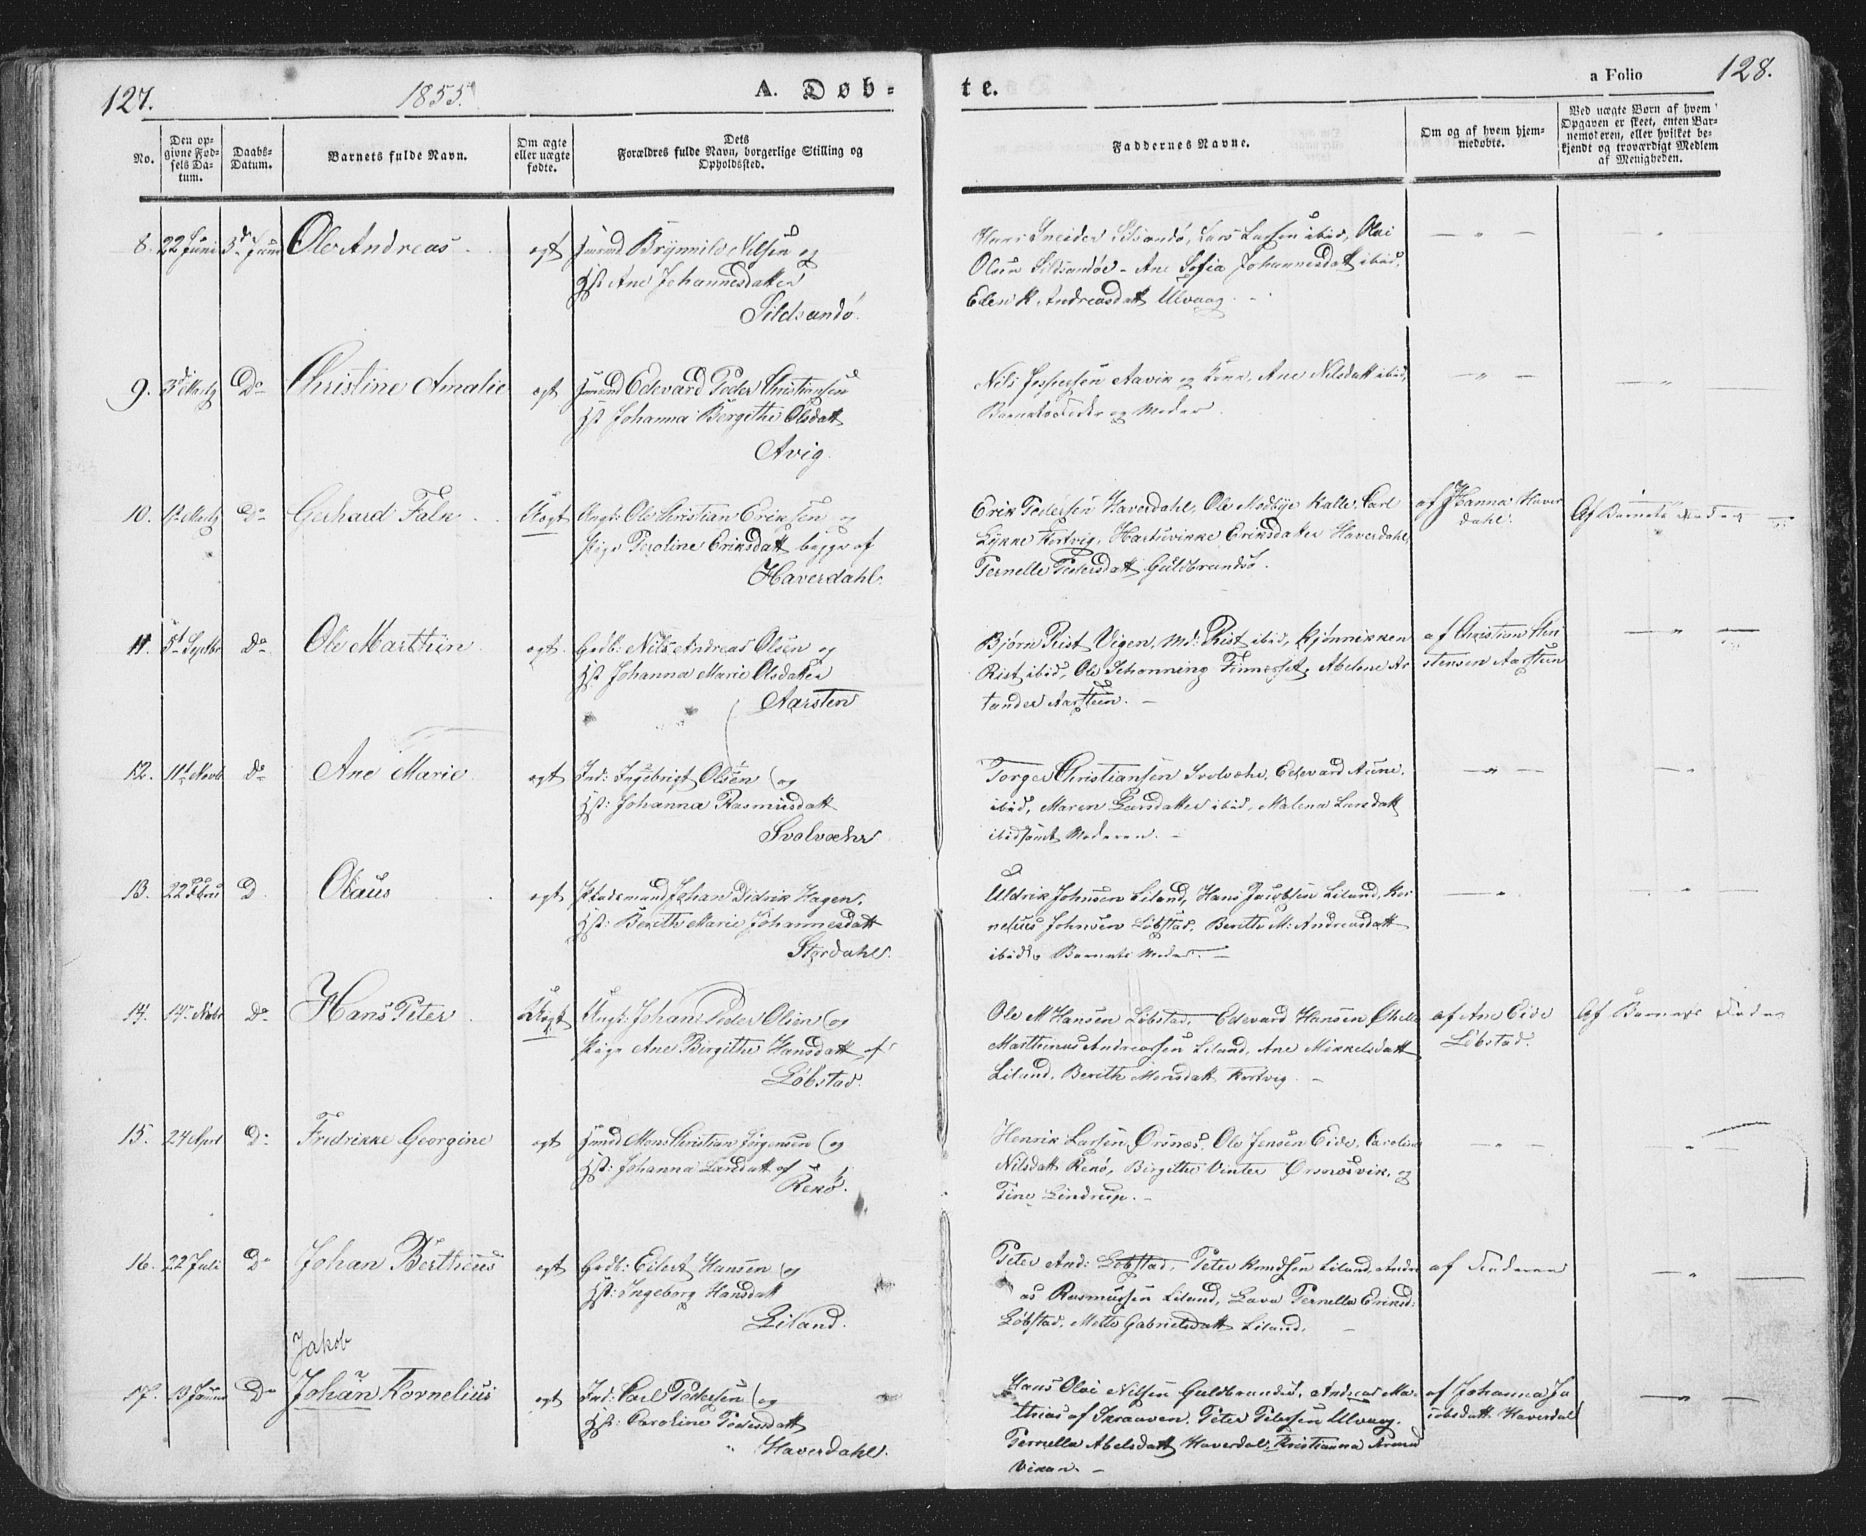 127.
1855.
A. Døb-
te.
a Folio
128.
No.
Den op-
givne Fød-
sels Da-
tum.
Daabs-
Datum.
Barnets fulde Navn.
Om ægte
eller uægte
fødte.
Dets
Forældres fulde Navn, borgerlige Stilling og
Opholdssted.
Faddernes Navne.
Om og af hvem hjem-
medøbte.
Ved uægte Børn af hvem
Opgaven er skeet, enten Bar-
nemoderen, eller hvilket be-
kjendt og troværdigt Medlem
af Menigheden.
8. 22 Juni Ole Andreas ægt Nilsen og
Hst Ane Johannesdatter
Sildsandø.
Lars Larsen ibid, Olai
Olsen Sildsandø - Ane Sofia Johannesdatt ibid,
Elen K. Andreasdatt Ulvaag.
9. 3d Martz Do Christine Amalie ægt Edevard Peder Christiansen
Hst Johanna Bergithe Olsdatt
Avig
Nils Jespersen Aavik og Kone, Ane Nilsdatt ibid,
Barnets Fader og Moder.
10. Martz Do Gerhard Falk Uægt Ungk: Ole Christian Eriksen og
Pige Peroline Eriksdatt begge af
Haverdahl.
Erik Pedersen Haverdahl, Ole Kalle, Carl
Lykke Kortvig, Eriksdatter Haverdahl,
Pernelle Pedersdatt Guldbrandsø.
af Hanna Haver
dahl.
Af Barnets Fader
11. 5t Do Ole Marthin ægt Gdb: Nils Andreas Olsen og
Hst Johanna Marie Olsdatter
Aarsten
Bjørn Rist Vigen, Md: Rist ibid,
Rist ibid, Ole Schonning Finneset, Abelone Ar
tander Aarsteen.
af Christian Chri
stensen Aarsteen
12. 11t Novb Do Ane Marie ægt Ind: Ingebrigt Olsen og
Hst: Johanna Rasmusdatt
Svolvæhr
Torger Christiansen Svolvæhr, Edevard Aune,
ibid, Maren Larsdatter ibid, Malena Larsdatt
ibid samt Moderen.
13. 22 Febru D Olaus ægt Pladsmand Johan Didrik Hagen,
Hst: Berith Marie Johannesdatt
Stordahl.
Uldrik Johnsen Liland, Hans Jacobsen Liland, Kor
nelius Johnsen Løbstad, Berith M: Andreasdatt
ibid & Barnets Moder.
14. 14 Novbr Do Hans Peter Uægt Ungk: Johan Peder Olsen og
Pige Ane Birgithe Hansdatt af
Løbstad.
Ole M Hansen Løbstad, Edevard Hansen
Marthinus Andreassen Liland, Ane Mikkelsdatt
Liland, Berith Monsdatt Kortvig.
af Ane Eide
Løbstad.
Af Barnets Fader
15. 24 Apri Do Fredrikke Georgine ægt Mons Christian Jørgensen og
Hst: Johanna Larsdatt af
Renø.
Henrik Larsen Ørsnæs, Ole Jensen Eide, Caroline
Nilsdatt Renø, Birgithe Vinter Ørsnæsvik, og
Tine Lindrup.
16. 22 Juli Do Johan Berthæus ægt Gdb: Eilert Hansen og
Hst: Ingeborg Hansdatt
Liland.
Peter And: Løbstad, Peter Knudsen Liland, Andre
as Rasmussen Liland, Lava Pernella Eriksd:
Løbstad, Mette Gabrielsdatt Liland.
af Faderen
Jakob
17. 13 Do Johan Kornelius ægt Ind: Carl Pedersen og
Hst: Caroline Pedersdatt
Haverdahl.
Hans Olai Nilsen Guldbrandsø, Andreas Ma-
thias af Skraaven, Peter Petersen Ulvaag,
Pernella Abelsdatt Haverdal, Kristianna
Vikan
af Johanna Ja
cobsdatt Haverdal